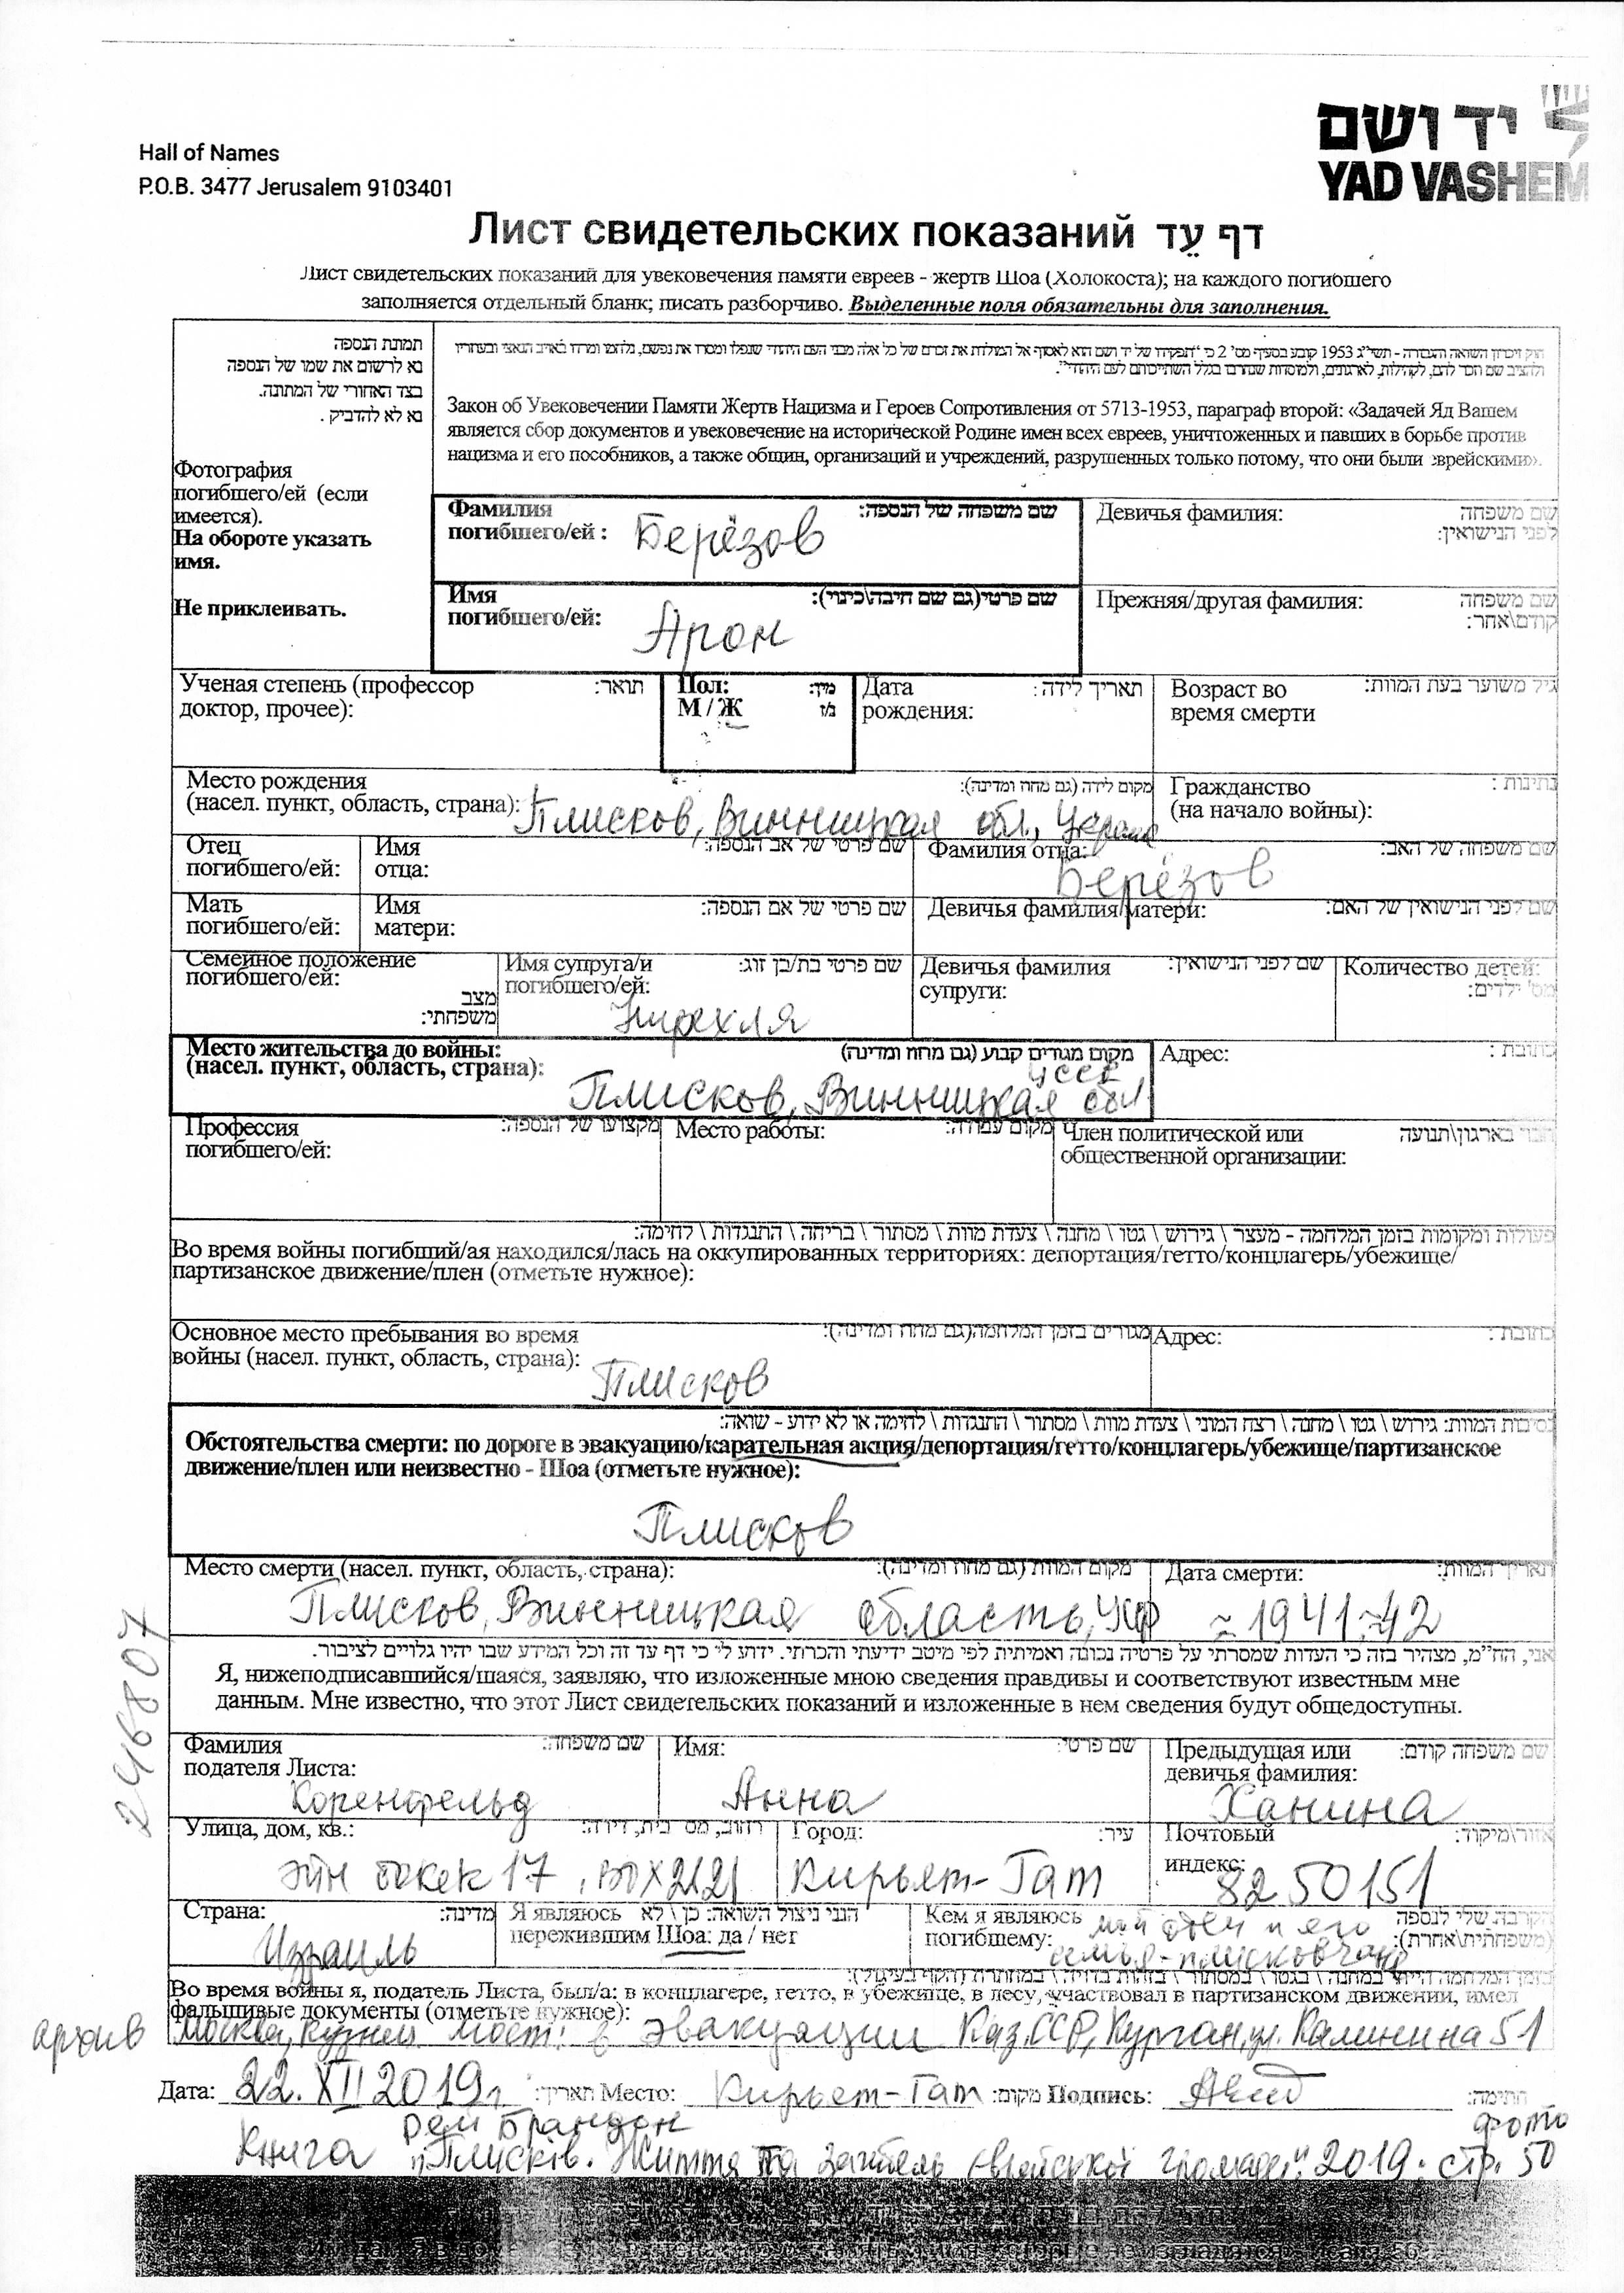 יד ושם
YAD VASHEM
Hall of Names
P.O.B. 3477 Jerusalem 9103401
Лист свидетельских показаний דף עֵד
Лист свидетельских показаний для увековечения памяти евреев - жертв Шоа (Холокоста); на каждого погибшего
заполняется отдельный бланк; писать разборчиво. Выделенные поля обязательны для заполнения.
תמתנת הנספה
נא לרשום את שמו של הנספה
בצד האחורי של המתונה.
נא לא להדביק .
Фотография
погибшего/ей (если
имеется).
На обороте указать
имя.
Не приклеивать.
חוק זיכרון השואה והגבורה - תשי"ג 1953 קובע בסעיף מס' 2 כי "תפקידו של יד ושם הוא לאסוף אל המולדת את זכרם של כל אלה מבני העם היהודי שנפלו ומסרו את נפשם, נלחמו ומרדו באויב הנאצי ובעוזריו
ולהציב שם וזכר להם, לקהילות, לארגונים, ולמוסדות שנחרבו בגלל השתייכותם לעם היהודי".
Закон об Увековечении Памяти Жертв Нацизма и Героев Сопротивления от 5713-1953, параграф второй: «Задачей Яд Вашем
является сбор документов и увековечение на исторической Родине имен всех евреев, уничтоженных и павших в борьбе против
нацизма и его пособников, а также общин, организаций и учреждений, разрушенных только потому, что они были еврейскими».
Фамилия погибшего/ей : שם משפחה של הנספה: Берёзов
Девичья фамилия: שם משפחה לפני הנישואין:
Имя погибшего/ей: שם פרטי(גם שם חיבה\כינוי): Арон
Прежняя/другая фамилия: שם משפחה קודם\אחר:
Ученая степень (профессор доктор, прочее): תואר:
Пол: מין: М / Ж ז/נ
Дата рождения: תאריך לידה:
Возраст во время смерти גיל משוער בעת המוות:
Место рождения (насел. пункт, область, страна): מקום לידה (גם מחוז ומדינה): Плисков, Винницкая обл.,
Гражданство (на начало войны): נתינות :
Отец погибшего/ей:
Имя отца: שם פרטי של אב הנספה:
Фамилия отца: שם משפחה של האב: Берёзов
Мать погибшего/ей:
Имя матери: שם פרטי של אם הנספה:
Девичья фамилия матери: שם לפני הנישואין של האם:
Семейное положение погибшего/ей: מצב משפחתי:
Имя супруга/и погибшего/ей: שם פרטי בת/בן זוג:
Девичья фамилия супруги: שם לפני הנישואין:
Количество детей: מס' ילדים:
Место жительства до войны: (насел. пункт, область, страна): מקום מגורים קבוע (גם מחוז ומדינה) Плисков, Винницкая обл
Адрес: כתובת :
Профессия погибшего/ей: מקצועו של הנספה:
Место работы: מקום עבודה:
Член политической или общественной организации: חבר בארגון\תנועה
פעולות ומקומות בזמן המלחמה - מעצר \ גירוש \ גטו \ מחנה \ צעדת מוות \ מסתור \ בריחה \ התנגדות \ לחימה:
Во время войны погибший/ая находился/лась на оккупированных территориях: депортация/гетто/концлагерь/убежище/
партизанское движение/плен (отметьте нужное):
Основное место пребывания во время войны (насел. пункт, область, страна): מגורים בזמן המלחמה(גם מחוז ומדינה): Плисков
Адрес: כתובת :
נסיבות המוות: גירוש \ גטו \ מחנה \ רצח המוני \ צעדת מוות \ מסתור \ התנגדות \ לחימה או לא ידוע - שואה:
Обстоятельства смерти: по дороге в эвакуацию/карательная акция/депортация/гетто/концлагерь/убежище/партизанское
движение/плен или неизвестно - Шоа (отметьте нужное):
Плисков
Место смерти (насел. пункт, область, страна): מקום המוות (גם מחוז ומדינה): Дата смерти: תאריך המוות:
Плисков, Винницкая область, Укр ≈ 1941-42
246807
אני, הח"מ, מצהיר בזה כי העדות שמסרתי על פרטיה נכונה ואמיתית לפי מיטב ידיעתי והכרתי. ידוע לי כי דף עד זה וכל המידע שבו יהיו גלויים לציבור.
Я, нижеподписавшийся/шаяся, заявляю, что изложенные мною сведения правдивы и соответствуют известным мне
данным. Мне известно, что этот Лист свидетельских показаний и изложенные в нем сведения будут общедоступны.
Фамилия подателя Листа: שם משפחה: Коренфельд
Имя: שם פרטי: Анна
Предыдущая или девичья фамилия: שם משפחה קודם: Ханина
Улица, дом, кв.: רחוב, מס' בית, דירה: 17
Город: עיר: Кирьят-Гат
Почтовый индекс: אזור\מיקוד: 8250151
Страна: מדינה: Израиль
Я являюсь пережившим Шоа: да / нет הנני ניצול השואה: כן \ לא
Кем я являюсь погибшему: הקרבה שלי לנספה (משפחתית\אחרת): мой отец и его
семья-плисковчане
Во время войны я, податель Листа, был/а: в концлагере, гетто, в убежище, в лесу, участвовал в партизанском движении, имел
фальшивые документы (отметьте нужное):
архив Москва, Кузнец мост: в эвакуации Каз.ССР, Курган, ул. Калинина 51
Дата: 22.XII 2019г תאריך: Место: Кирьет-Гат מקום: Подпись: חתימה:
Рем Брандон фото
Книга "Плисків. Життя та загибель єврейської громади". 2019. стр. 50